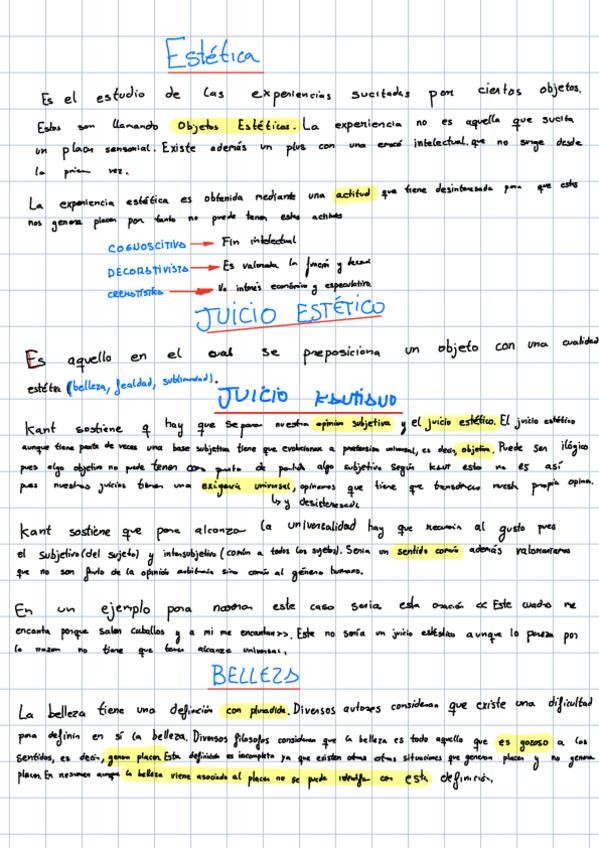 Estética
Es el estudio de las experiencias sucitadas por ciertos objetos.
Estos son llamando Objetos Estéticos. La experiencia no es aquella que sucita
un placer sensorial. Existe además un plus con una intelectual. que no surge desde
la primera vez.
La experiencia estética es obtenida mediante una actitud que tiene desinteresada para que estos
nos genera placer por tanto no puede tener estas actitudes
COGNOSCITIVA → Fin intelectual
DECORATIVISTA → Es valorada la función y
CREMATÍSTICA → Un interés económico y especulativa
JUICIO ESTÉTICO
Es aquello en el cual se preposiciona un objeto con una cualidad
estética (belleza, fealdad, sublimidad).
JUICIO KANTIANO
Kant sostiene q hay que separar nuestra opinión subjetiva y el juicio estético. El juicio estético
aunque tiene parte de veces una base subjetiva tiene que evolucionar a pretensión universal, es decir, objetiva. Puede ser ilógico
pues algo objetivo no puede tener como punto de partida algo subjetivo según Kant esto no es así
pues nuestros juicios tienen una exigencia universal, opinamos que tiene que nuestra propia opinión.
↳ y desinteresada
Kant sostiene que para alcanzar la universalidad hay que recurrir al gusto pues
el subjetivo (del sujeto) y intersubjetivo (común a todos los sujetos). Sería un sentido común además valoraríamos
que no son fruto de la opinión arbitraria sino común al género humano.
En un ejemplo para mostrar este caso sería esta oración << Este cuadro me
encanta porque salen caballos y a mi me encantan>>. Este no sería un juicio estético aunque lo parezca por
la razón no tiene que tener alcance universal.
BELLEZA
La belleza tiene una definición con pluradida. Diversos autores consideran que existe una dificultad
para definir en sí la belleza. Diversos filósofos consideran que la belleza es todo aquello que es gozoso a los
sentidos, es decir, genera placer. Esta definición es incompleta ya que existen otras situaciones que generan placer y no genera
placer. En resumen aunque la belleza viene asociada al placer no se puede identificar con esta definición.